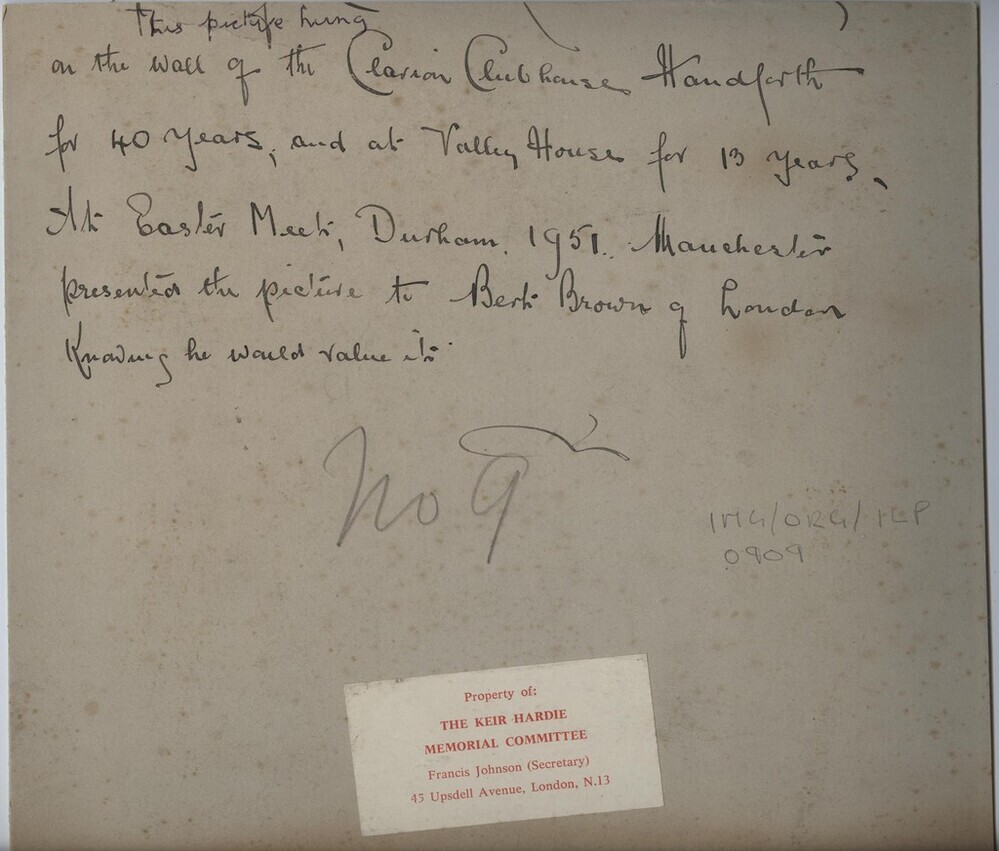 This picture hung
on the wall of the Clarion Clubhouse Handforth
for 40 years, and at Valley House for 13 years.
At Easter Meet, Durham, 1951. Manchester
presented the picture to Bert Brown of London
Knowing he would value it.
No 9
IMG/ORG/ILP
0909
Property of:
THE KEIR HARDIE
MEMORIAL COMMITTEE
Francis Johnson (Secretary)
45 Upsdell Avenue, London, N.13